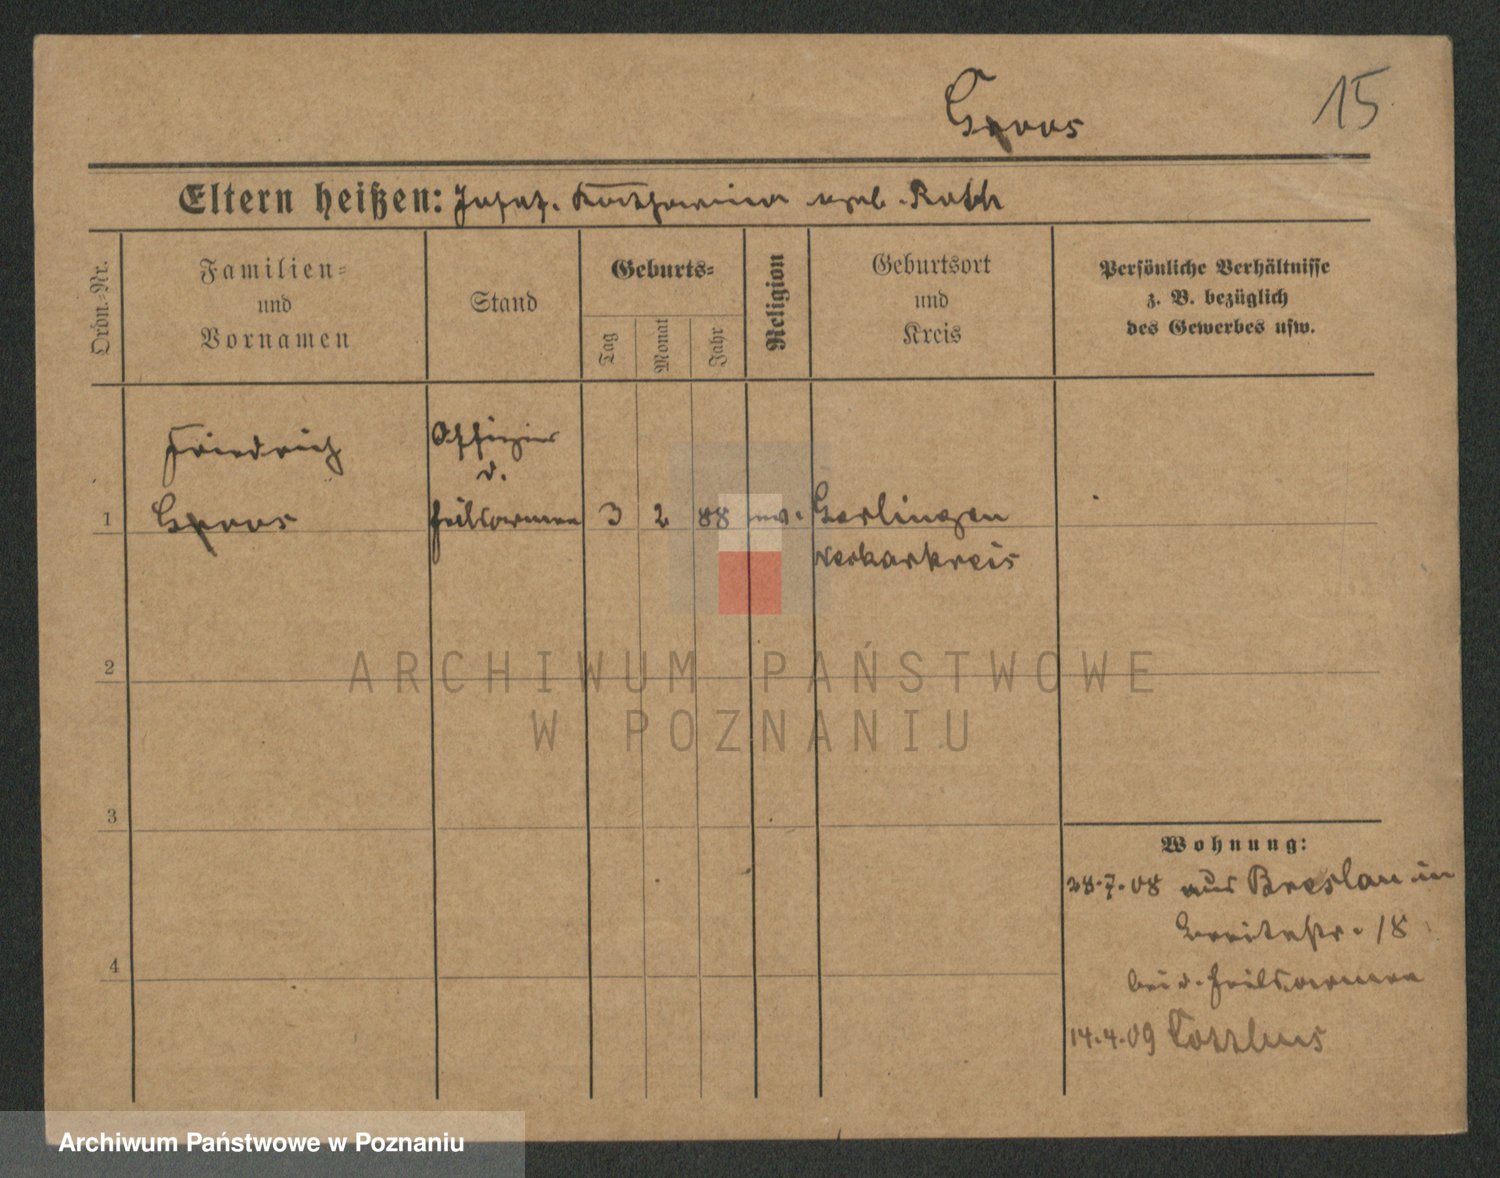 15
Groos
Eltern heißen: Josef. Katharina geb. Roth
Ordn.=Nr.
Familien=
und
Vornamen
Stand
Geburts=
Tag
Monat
Jahr
Religion
Geburtsort
und
Kreis
Persönliche Verhältnisse
z. B. bezüglich
des Gewerbes usw.
Friedrich
Groos
Offizier
d.
Heilsarmee
1
3 2 88 ev. Gerlingen
Neckarkreis
2
ARCHIWUM PAŃSTWOWE
W POZNANIU
3
4
Wohnung:
28.7.08 aus Breslau in
Breitestr. 18
bei d. Heilsarmee
14.4.09 Cottbus
Archiwum Państwowe w Poznaniu